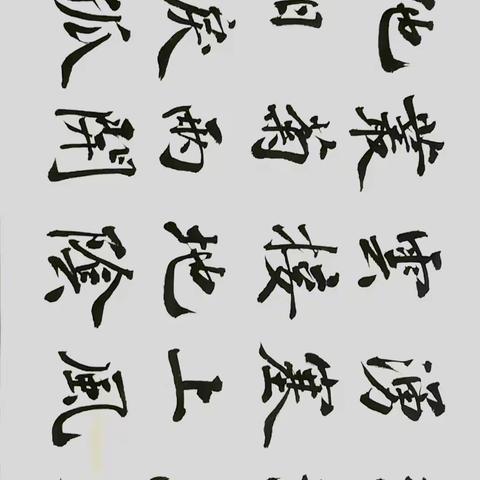 湧塞上風
雲接地陰
叢菊兩開
他日淚孤